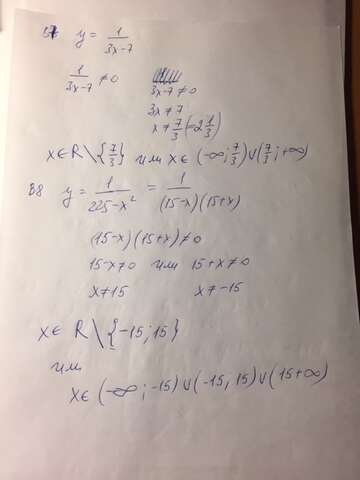 B7 y = 1/(3x-7)
1/(3x-7) ≠ 0
3x-7 ≠ 0
3x ≠ 7
x ≠ 7/3 (=2 1/3)
x∈R \ {7/3} или x∈ (-∞; 7/3) ∪ (7/3; +∞)
B8 y = 1/(225-x²) = 1/((15-x)(15+x))
(15-x)(15+x) ≠ 0
15-x≠0 или 15+x≠0
x≠15 x≠-15
x∈ R \ {-15; 15}
или
x∈ (-∞; -15) ∪ (-15, 15) ∪ (15 +∞)